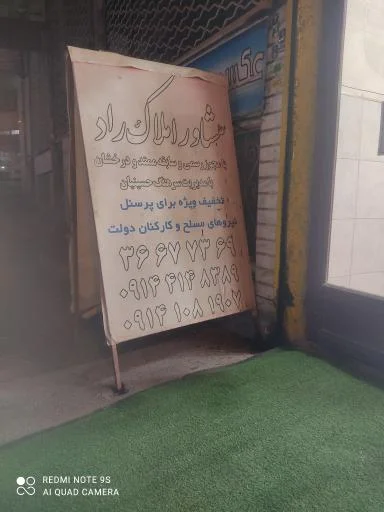 مشاور املاک راد
با مجوز رسمی و سابقه ممتد و درخشان
با مدیریت سرهنگ حسینیان
تخفیف ویژه برای پرسنل
نیروهای مسلح و کارکنان دولت
۳۶ ۶۷ ۷۳ ۶۹
۰۹۱۴ ۴۱۴ ۸۳۸۹
۰۹۱۴ ۱۰۸ ۱۹۰۷
REDMI NOTE 9S
AI QUAD CAMERA